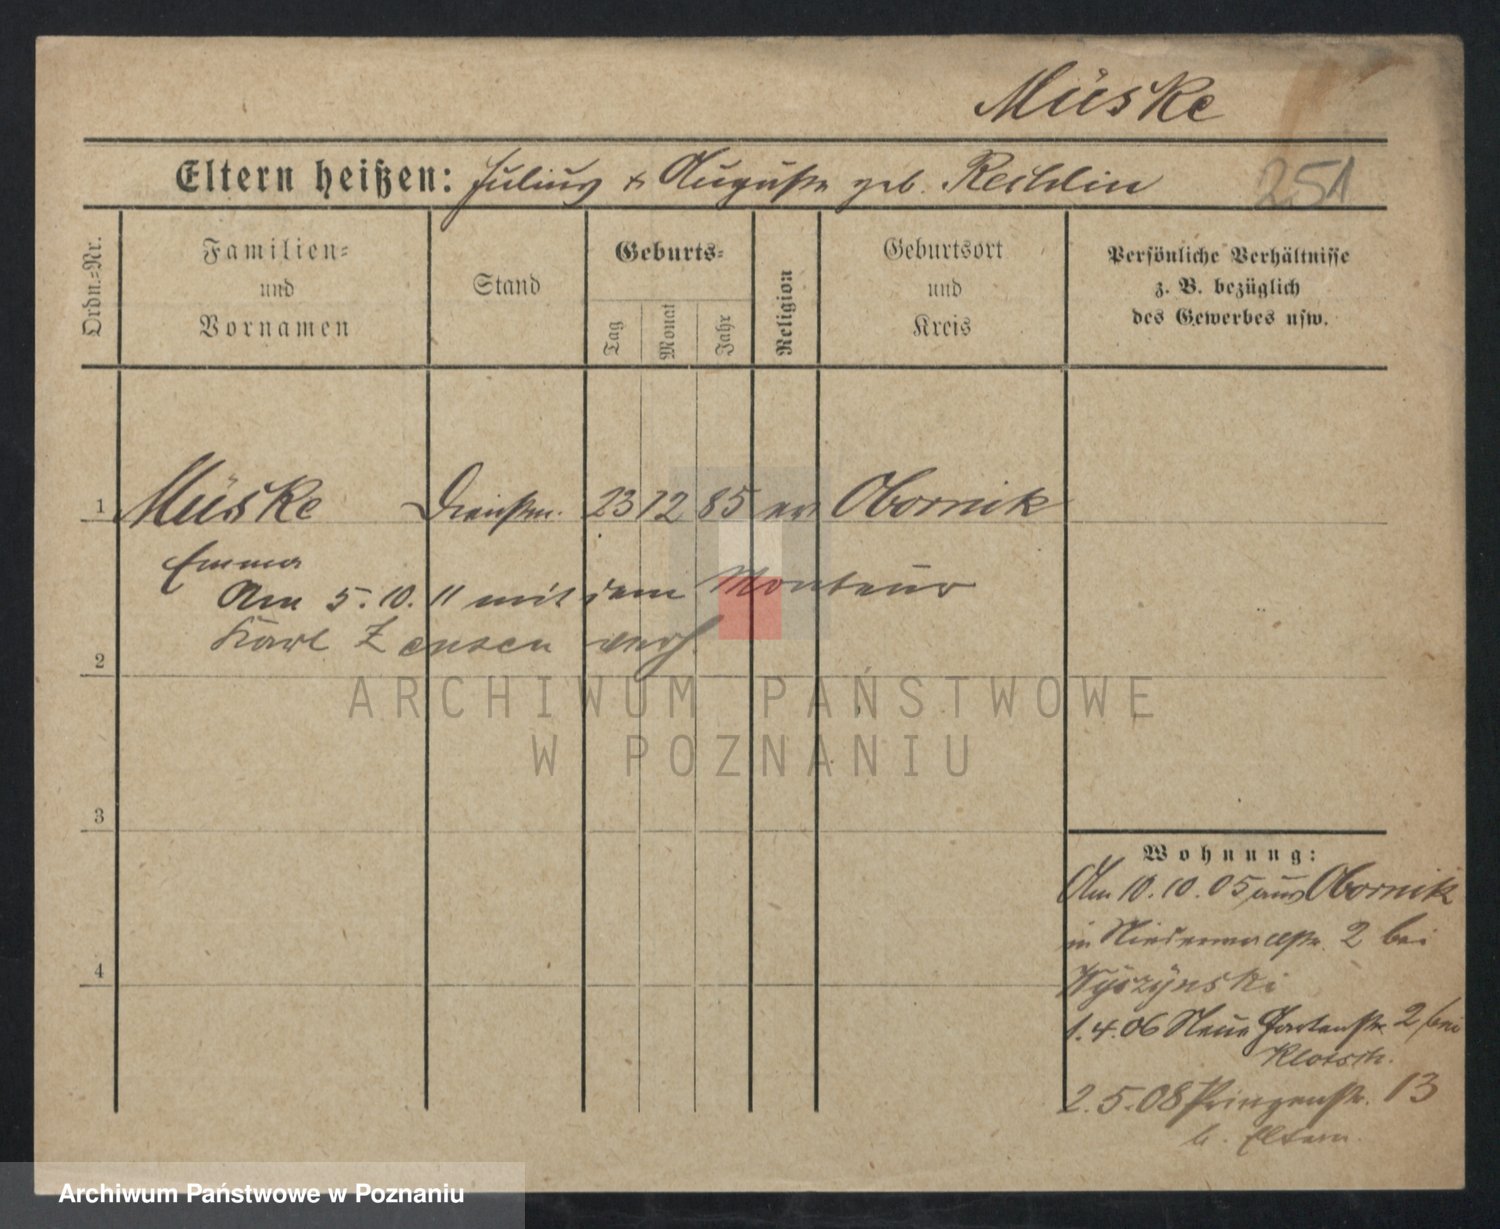 Müske
Eltern heißen: Julius & Auguste geb. Rechlin
251
Ordn.=Nr.
Familien=
und
Vornamen
Stand
Geburts=
Tag
Monat
Jahr
Religion
Geburtsort
und
Kreis
Persönliche Verhältnisse
z. B. bezüglich
des Gewerbes usw.
1 Müske Dienstm. 23 12 85 ev Obornik
Emma
Am 5. 10. 11 mit dem Monteur
Karl verh.
2
ARCHIWUM PAŃSTWOWE
W POZNANIU
3
Wohnung:
Am 10. 10. 05 aus Obornik
in Niederwallstr. 2 bei
Wyszynski
4
1. 4. 06 Neue Gartenstr. 2 bei
2. 5. 08 Prinzenstr. 13
b. Eltern.
Archiwum Państwowe w Poznaniu